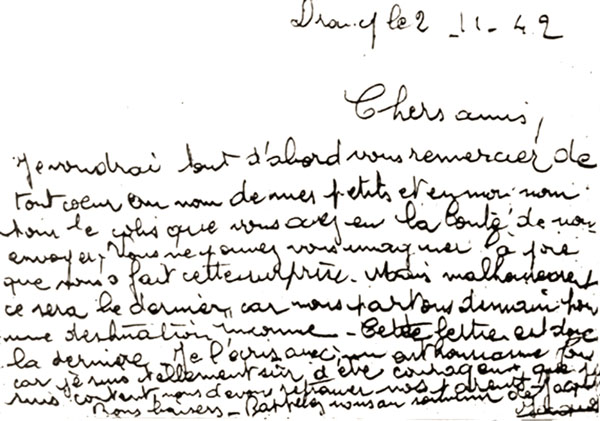 Drancy le 2 - 11 - 42
Chers amis,
Je voudrai tout d'abord vous remercier de
tout coeur au nom de mes petits et en mon nom
pour le colis que vous avez eu la bonté de nous
envoyer, vous ne pouvez vous imaginer la joie
que nous a fait cette surprise. Mais malheureuse
ce sera le dernier, car nous partons demain pour
une destination inconnue - Cette lettre est donc
la dernière. Je l'écris avec un enthousiasme fou
car je suis tellement sûr d'être courageux, que je
suis content nous devons retrouver nos parents
Bons baisers - Rappelez nous au souvenir de